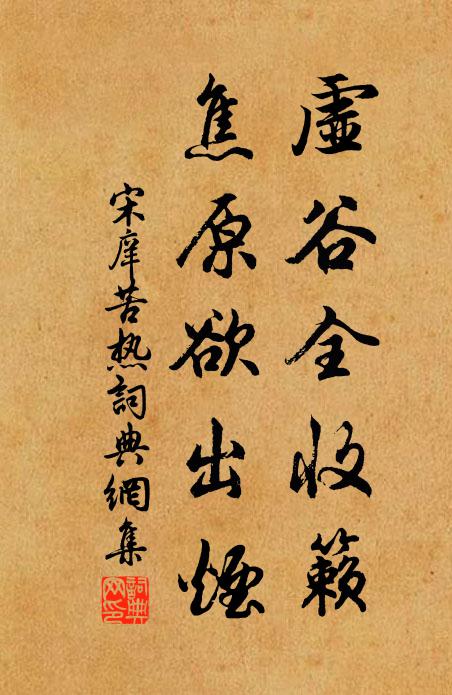 虛谷全收籟
焦原欲出煙
宋庠苦热詞典網集
詞典網印